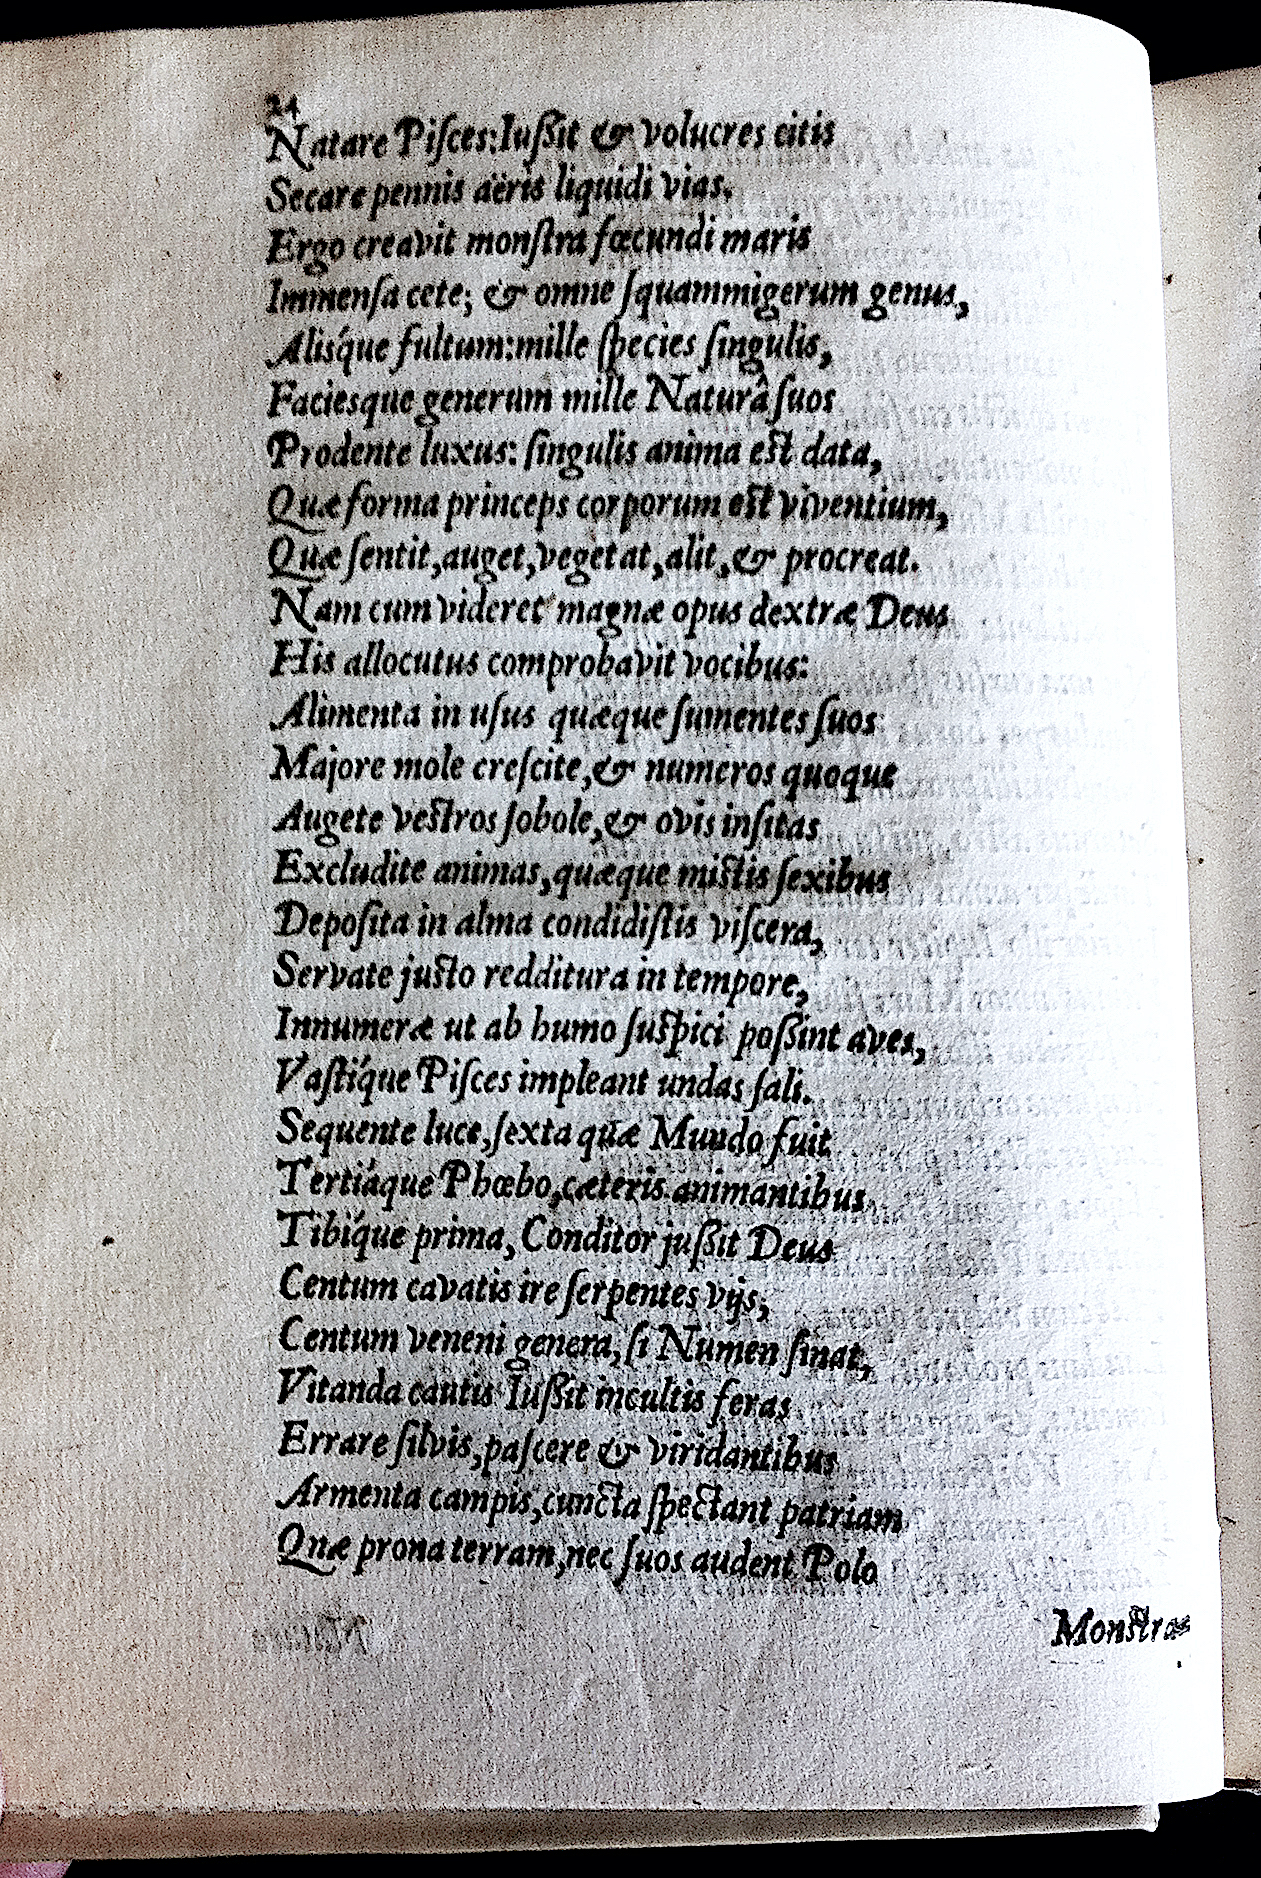 24
Natare Piſces: Iuſſit & volucres citis
Secare pennis aëris liquidi vias.
Ergo creavit monſtra fœcundi maris
Immenſa cete; & omne ſquammigerum genus,
Aliſque fultum: mille ſpecies ſingulis,
Facieſque generum mille Naturâ ſuos
Prodente luxus: ſingulis anima eſt data,
Quæ forma princeps corporum eſt viventium,
Quæ ſentit, auget, vegetat, alit, & procreat.
Nam cum videret magnæ opus dextræ Deus
His allocutus comprobavit vocibus:
Alimenta in uſus quæque ſumentes ſuos
Majore mole creſcite, & numeros quoque
Augete veſtros ſobole, & ovis inſitas
Excludite animas, quæque miſtis ſexibus
Depoſita in alma condidiſtis viſcera,
Servate juſto redditura in tempore,
Innumeræ ut ab humo ſuſpici poſſint aves,
Vaſtíque Piſces impleant undas ſali.
Sequente luce, ſexta quæ Mundo fuit
Tertiáque Phœbo, cæteris animantibus
Tibíque prima, Conditor juſſit Deus
Centum cavatis ire ſerpentes vijs;
Centum veneni genera, ſi Numen ſinat,
Vitanda cautis Iuſſit incultis feras
Errare ſilvis, paſcere & viridantibus
Armenta campis, cuncta ſpectant patriam
Quæ prona terram, nec ſuos audent Polo